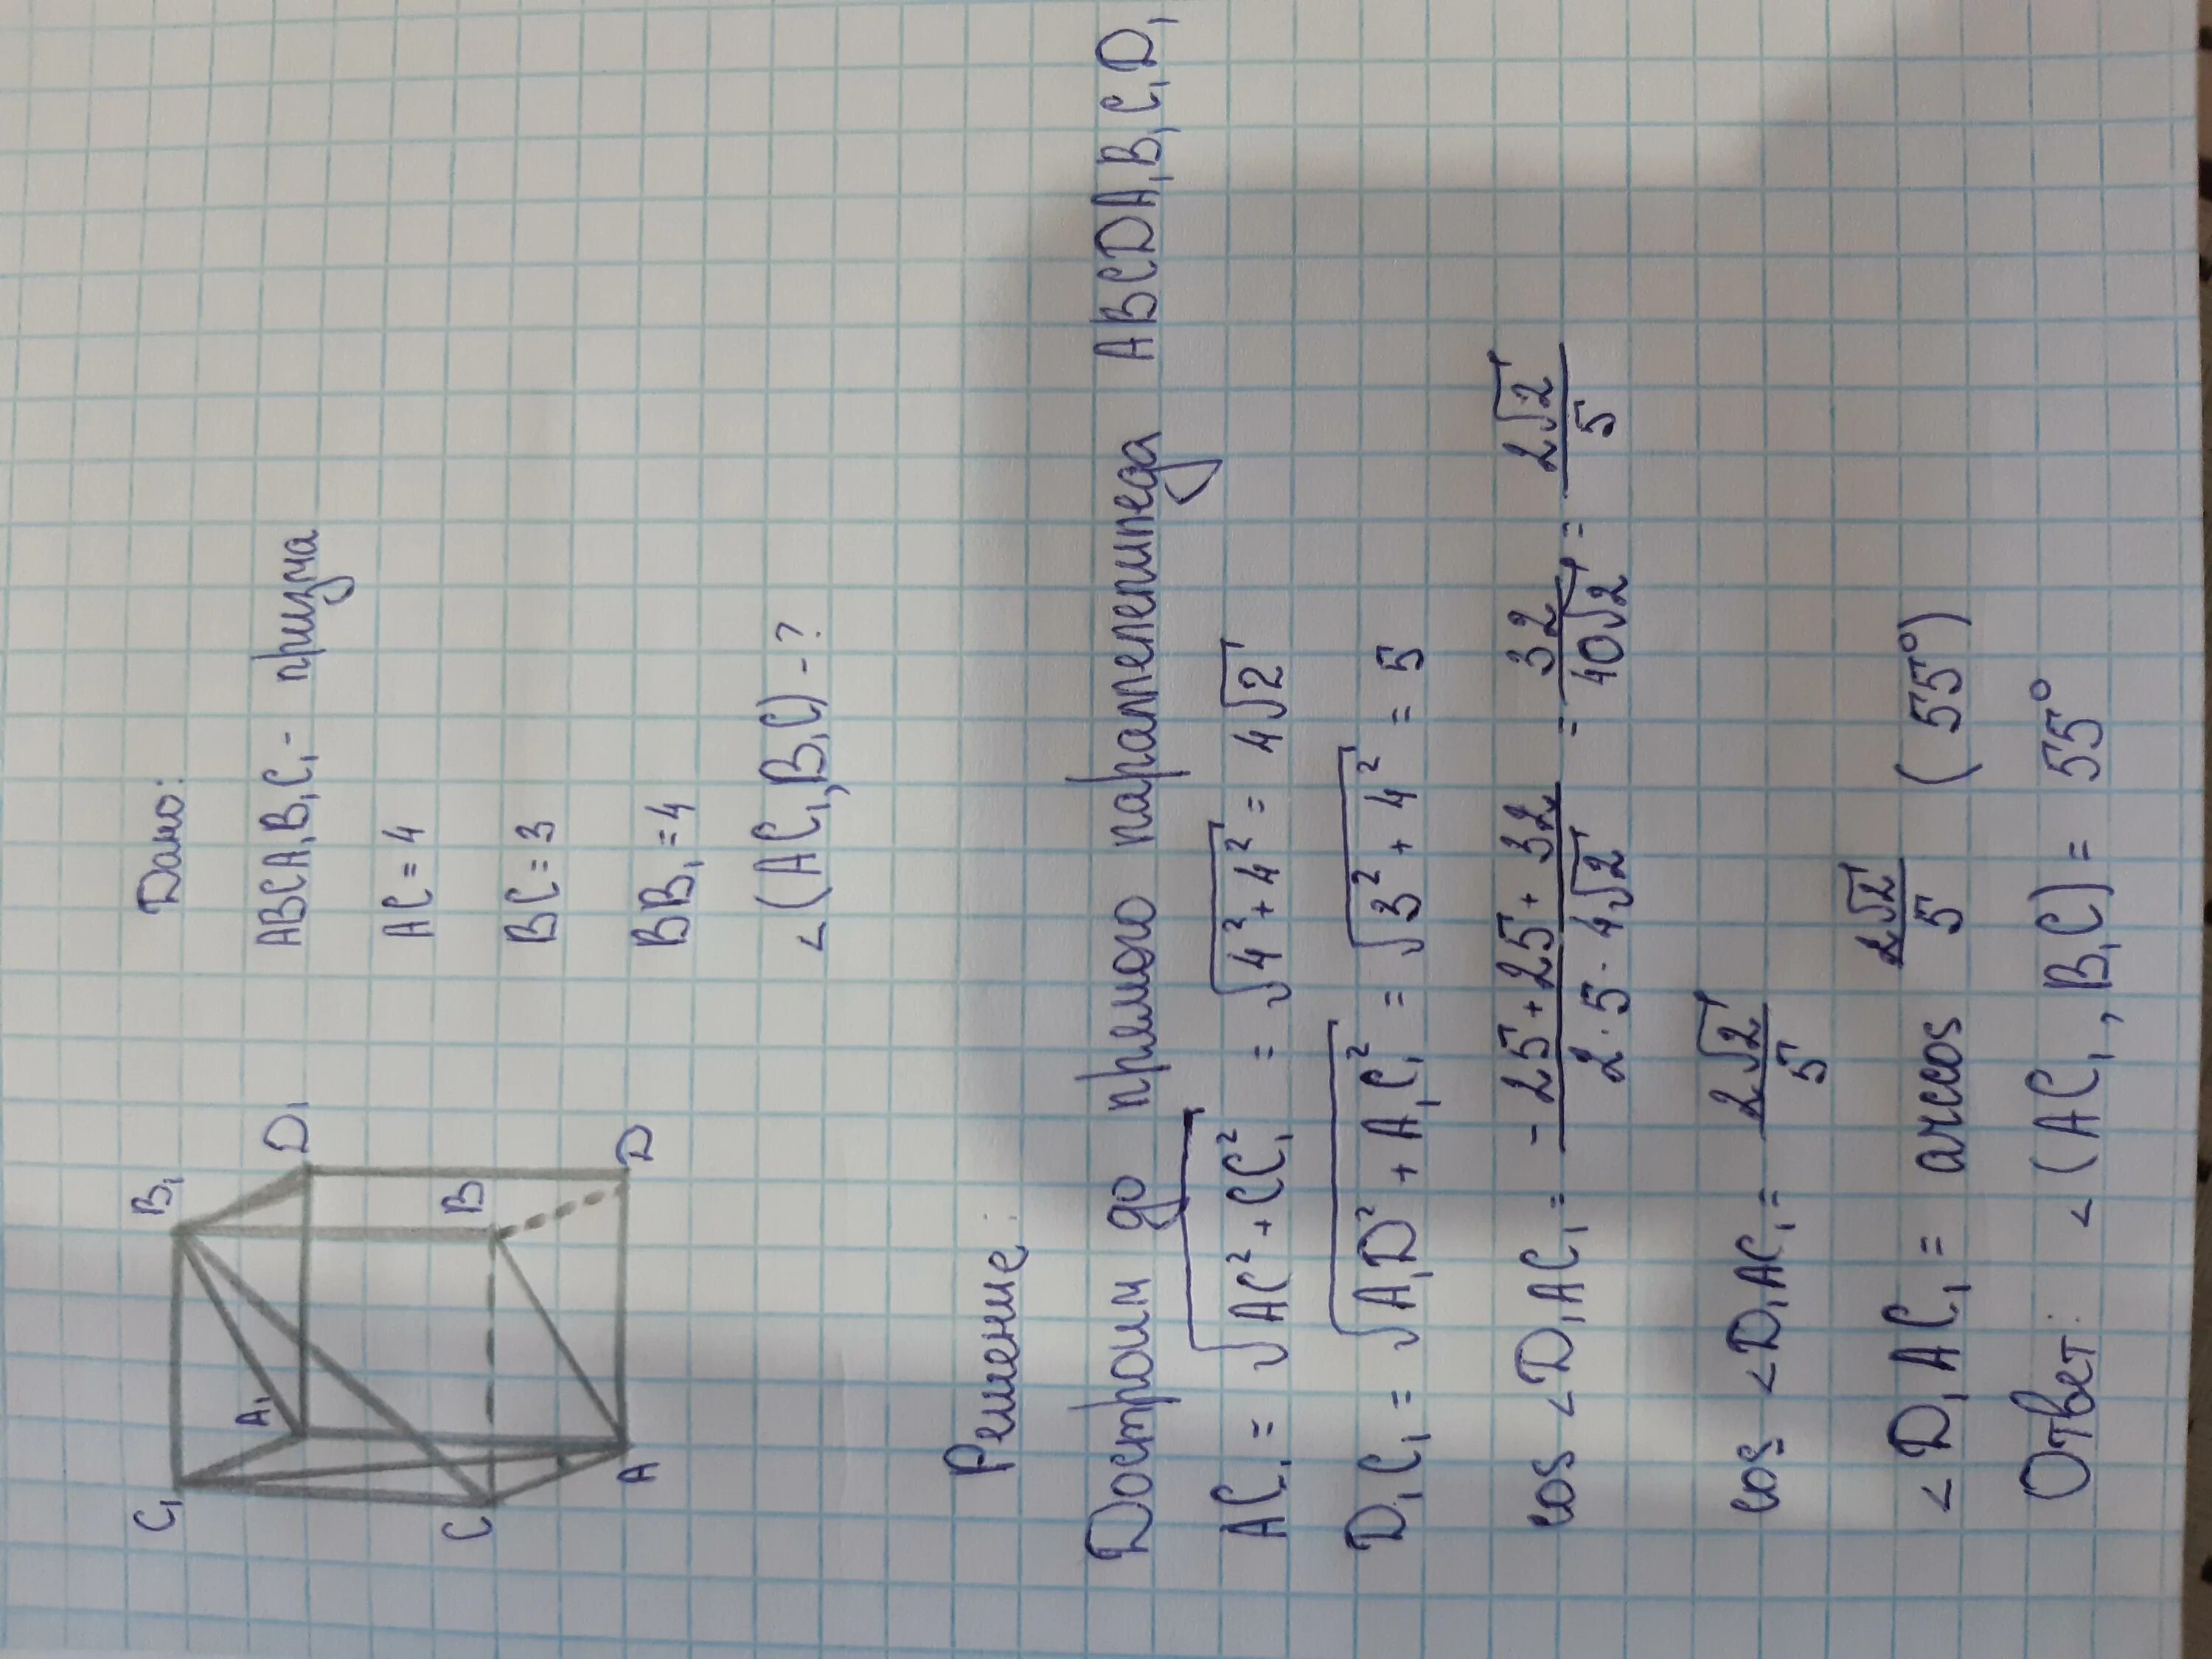 B₁
D₁
C₁
A₁
B
C
D
A
Дано:
ABCA₁B₁C₁ - призма
AC = 4
BC = 3
BB₁ = 4
∠(AC₁, B₁C) - ?
Решение:
Достроим до прямого параллелепипеда ABCDA₁B₁C₁D₁
AC₁ = √(AC² + CC₁²) = √(4² + 4²) = 4√2
D₁C₁ = √(A₁D² + A₁C₁²) = √(3² + 4²) = 5
cos ∠D₁AC₁ = (-25 + 25 + 32)/(2 · 5 · 4√2) = 32/(40√2) = 2√2/5
cos ∠D₁AC₁ = 2√2/5
∠D₁AC₁ = arccos 2√2/5 (55°)
Ответ: ∠(AC₁, B₁C) = 55°